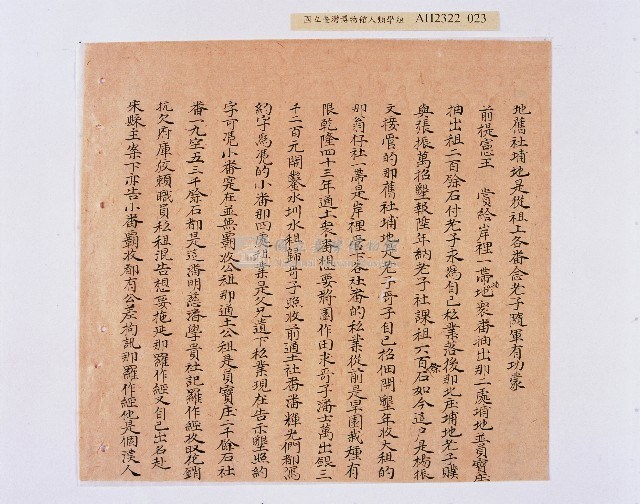 國立臺灣博物館人類學組 AH2322 023
地舊社埔地是從祖上各番念老子隨軍有功蒙
前撫憲王 賞給岸裡一帶地衆番抽出那二處埔地並員寶庄
抽出租二百餘石付老子永爲自己私業落後那北庄埔地老子贌
與張振萬招墾報陞年納老子社課租六百石如今這條戶是楊振
文接管的那舊社埔地是老子哥子自己招佃開墾年收大租的
那翁仔社一帶是岸裡受下各社番的私業從前是旱園栽種有
限乾隆四十三年通土衆番想要將園作田求哥子潘士萬出銀三
千二百元開鑿水圳水租歸哥子照收前通土社番潘輝光們都寫
約字爲憑的小番那四處租業是父兄遺下私業現在告示墾照約
字可憑小番實在並無霸收公租那通土公租是員寶庄二千餘石社
番一九宅五三千餘石都是這潘明慈潘學貴社記羅作經收取花銷
抗欠府庫佼賴職員私租混告想要拖延那羅作經又自己出名赴
朱縣主案下亦告小番霸收都有公差拘訊那羅作經他是個漢人